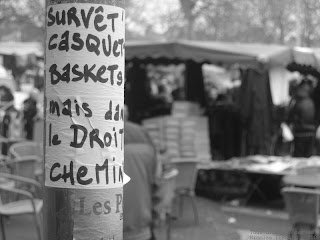 SURVÊT'
CASQUET
BASKETS
mais dan
le DROIT
CHEMIN
Les P